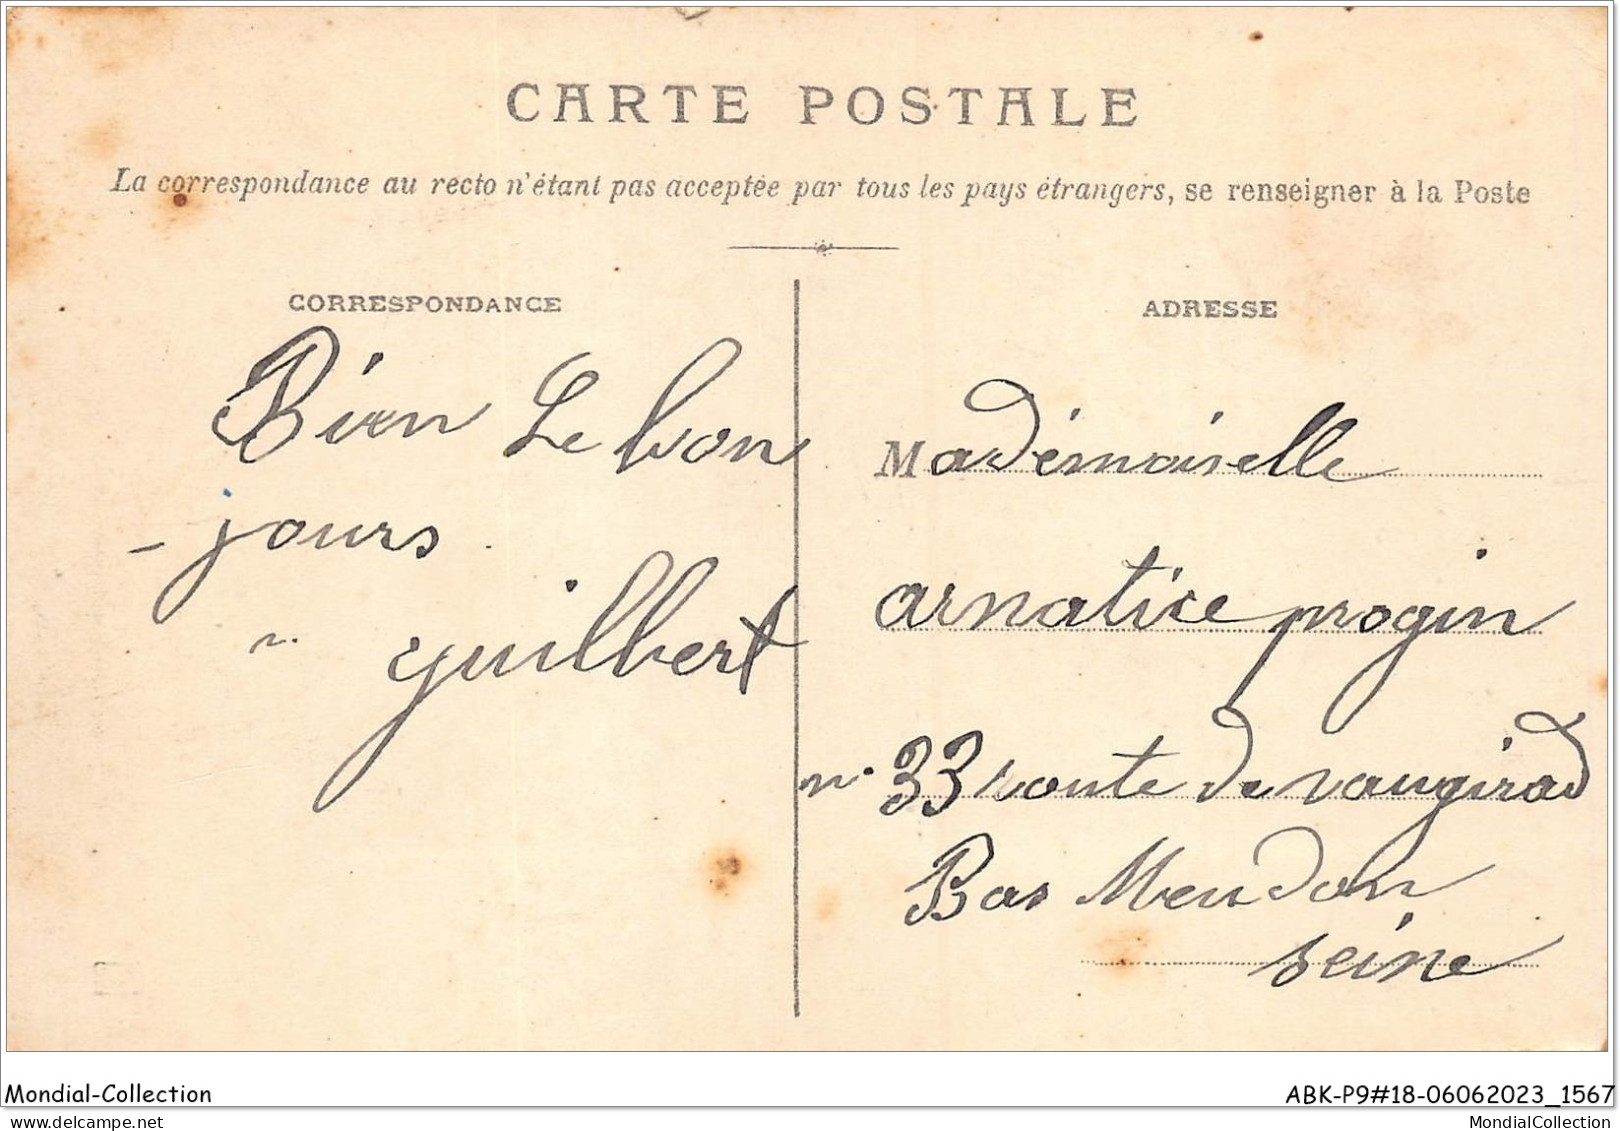 CARTE POSTALE
La correspondance au recto n'étant pas acceptée par tous les pays étrangers, se renseigner à la Poste
CORRESPONDANCE
Bien Le bon
- jours
guilbert
ADRESSE
Madémoiselle
arnatice progin
n. 33 route de vaugirad
Bas Meudon
seine
Mondial-Collection
ABK-P9#18-06062023_1567
delcampe.net
MondialCollection